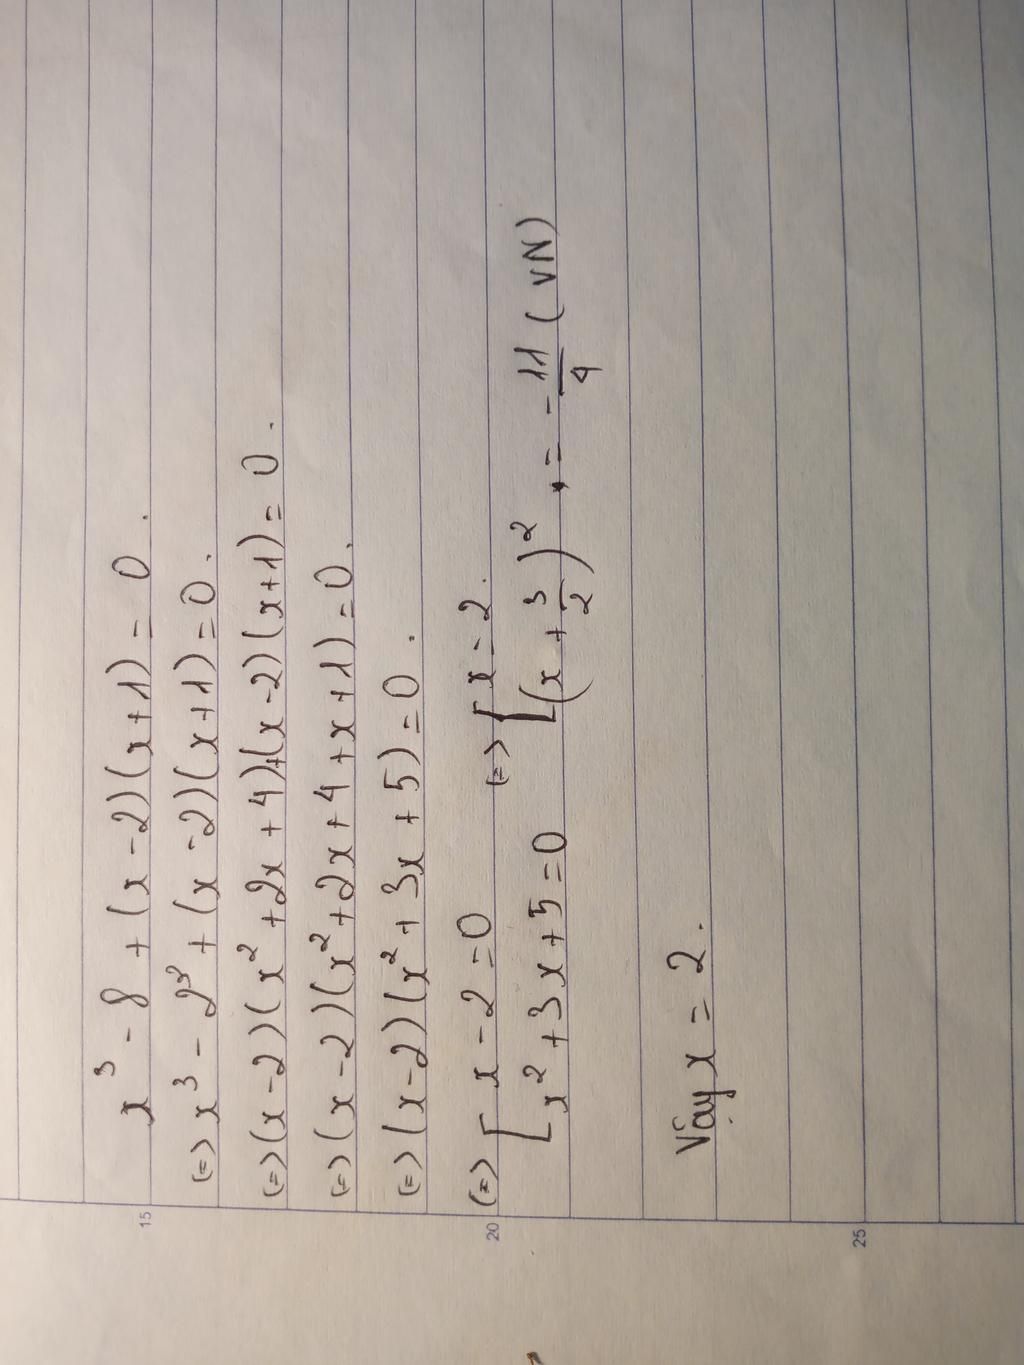 15
x³ - 8 + (x - 2)(x + 1) = 0.
(=) x³ - 2³ + (x - 2)(x + 1) = 0.
(=) (x - 2)(x² + 2x + 4) + (x - 2)(x + 1) = 0.
(=) (x - 2)(x² + 2x + 4 + x + 1) = 0.
(=) (x - 2)(x² + 3x + 5) = 0.
20
(=) [ x - 2 = 0 (=) [ x = 2.
[ x² + 3x + 5 = 0 [ (x + 3/2)² = -11/4 (VN)
Vậy x = 2.
25